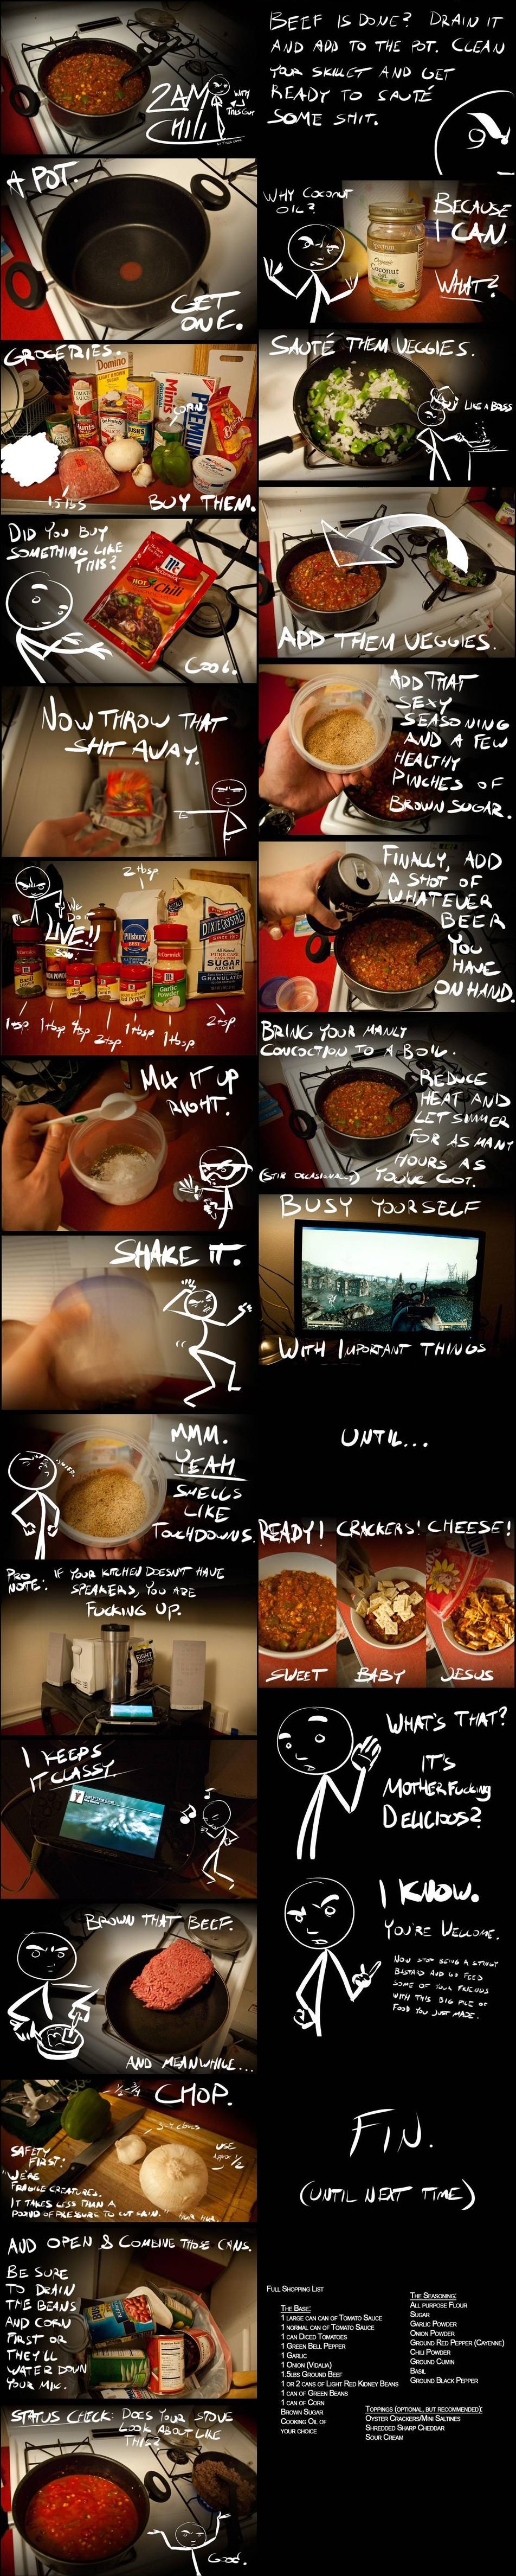 2AM
CHILI
WITH
THIS GUY
A POT.
GET
ONE.
GROCERIES.
Domino
Hunt's
BUSH'S
Minis
PREMIUM
CORN
1.5 LBS
BUY THEM.
DID YOU BUY
SOMETHING LIKE
THIS?
McCormick
HOT
Chili
COOL.
NOW THROW THAT
SHIT AWAY.
2 tbsp
WE
DO IT
LIVE!!
SON.
Pillsbury
BEST
DIXIE CRYSTALS
SINCE 1917
PURE CANE
SUGAR
AZUCAR
GRANULATED
McCormick
Garlic
Powder
1 tsp
1 tbsp
2 tsp
1 tbsp
1 tbsp
2 tsp
MIX IT UP
RIGHT.
SHAKE IT.
MMM.
YEAH
SMELLS
LIKE
TOUCHDOWNS.
PRO
NOTE:
IF YOUR KITCHEN DOESN'T HAVE
SPEAKERS, YOU ARE
FUCKING UP.
I KEEPS
IT CLASSY.
BROWN THAT BEEF.
AND MEANWHILE...
CHOP.
SAFETY
FIRST!
USE
1/2
"WE'RE
FRAGILE CREATURES.
IT TAKES LESS THAN A
POUND OF PRESSURE TO CUT SKIN."
AND OPEN & COMBINE THOSE CANS.
BE SURE
TO DRAIN
THE BEANS
AND CORN
FIRST OR
THEY'LL
WATER DOWN
YOUR MIX.
STATUS CHECK: DOES YOUR STOVE
LOOK ABOUT LIKE
THIS?
GOOD.
BEEF IS DONE? DRAIN IT
AND ADD TO THE POT. CLEAN
YOUR SKILLET AND GET
READY TO SAUTÉ
SOME SHIT.
WHY COCONUT
OIL?
Organic
Coconut
Oil
BECAUSE
I CAN.
WHAT?
SAUTÉ THEM VEGGIES.
LIKE A BOSS
ADD THEM VEGGIES.
ADD THAT
SEXY
SEASONING
AND A FEW
HEALTHY
PINCHES OF
BROWN SUGAR.
FINALLY, ADD
A SHOT OF
WHATEVER
BEER
YOU
HAVE
ON HAND.
BRING YOUR MANLY
CONCOCTION TO A BOIL.
REDUCE
HEAT AND
LET SIMMER
FOR AS MANY
HOURS AS
YOU'VE GOT.
(STIR OCCASIONALLY)
BUSY YOURSELF
WITH IMPORTANT THINGS
UNTIL...
READY! CRACKERS! CHEESE!
SWEET BABY JESUS
WHAT'S THAT?
IT'S
MOTHERFUCKING
DELICIOUS?
I KNOW.
YOU'RE WELCOME.
NOW STOP BEING A STINGY
BASTARD AND GO FEED
SOME OF YOUR FRIENDS
WITH THIS BIG PILE OF
FOOD YOU JUST MADE.
FIN.
(UNTIL NEXT TIME)
Full Shopping List
The Base:
1 large can can of Tomato Sauce
1 normal can of Tomato Sauce
1 can Diced Tomatoes
1 Green Bell Pepper
1 Garlic
1 Onion (Vidalia)
1.5lbs Ground Beef
1 or 2 cans of Light Red Kidney Beans
1 can of Green Beans
1 can of Corn
Brown Sugar
Cooking Oil of
your choice
The Seasoning:
All purpose Flour
Sugar
Garlic Powder
Onion Powder
Ground Red Pepper (Cayenne)
Chili Powder
Ground Cumin
Basil
Ground Black Pepper
Toppings (optional, but recommended):
Oyster Crackers/Mini Saltines
Shredded Sharp Cheddar
Sour Cream